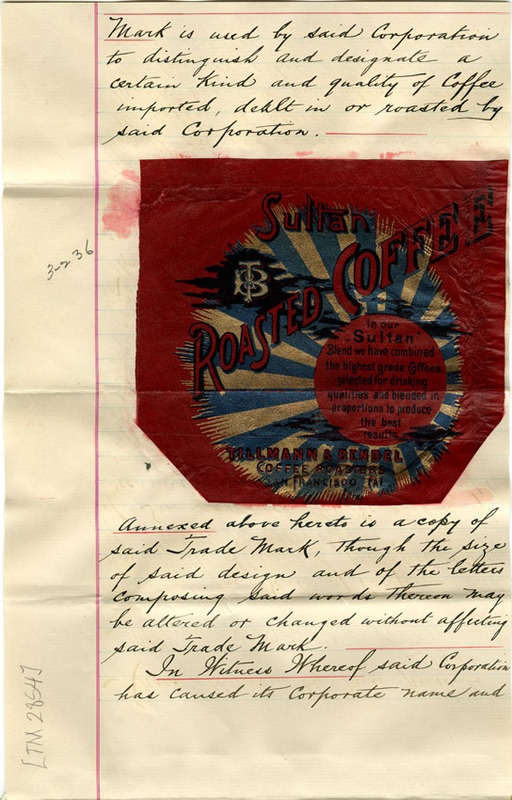 Mark is used by said Corporation
to distinguish and designate a
certain kind and quality of Coffee
imported, dealt in or roasted by
said Corporation.
3-2 36
Sultan
TB
ROASTED COFFEE
In our
Sultan
Blend we have combined
the highest grade Coffees,
selected for drinking
qualities and blended in
proportions to produce
the best
results.
TILLMANN & BENDEL
COFFEE ROASTERS
SAN FRANCISCO CAL
Annexed above hereto is a copy of
said Trade Mark, though the size
of said design and of the letters
composing said words thereon may
be altered or changed without affecting
said Trade Mark.
In Witness Whereof said Corporation
has caused its Corporate name and
[TM 2854]